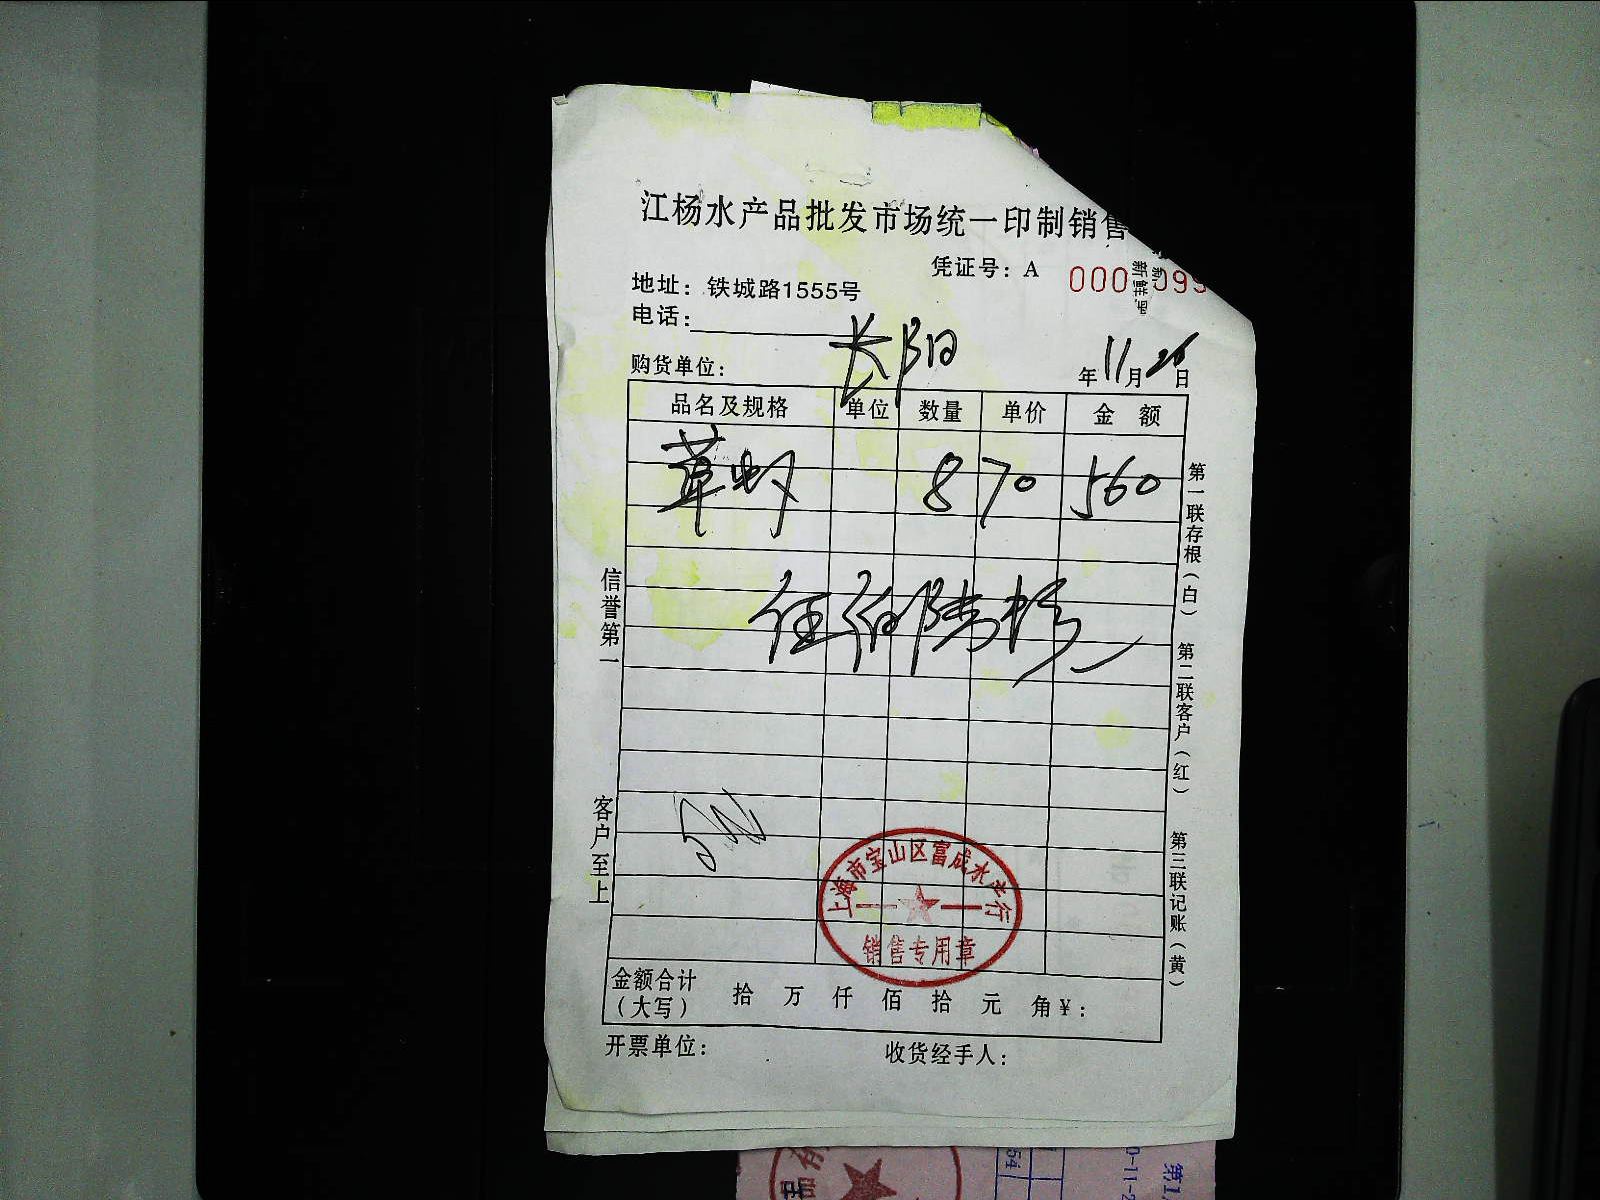 江杨水产品批发市场统一印制销售
凭证号：A 000 099
新鲜
地址：铁城路1555号
电话：
购货单位： 长阳 年11月26日
品名及规格 单位 数量 单价 金额
草虾 8 70 560
伍佰陆拾
信誉第一
客户至上
第一联存根（白）
第二联客户（红）
第三联记账（黄）
上海市宝山区富成水产行
销售专用章
金额合计（大写） 拾 万 仟 佰 拾 元 角¥：
开票单位： 收货经手人：
54
0-11-2
第1